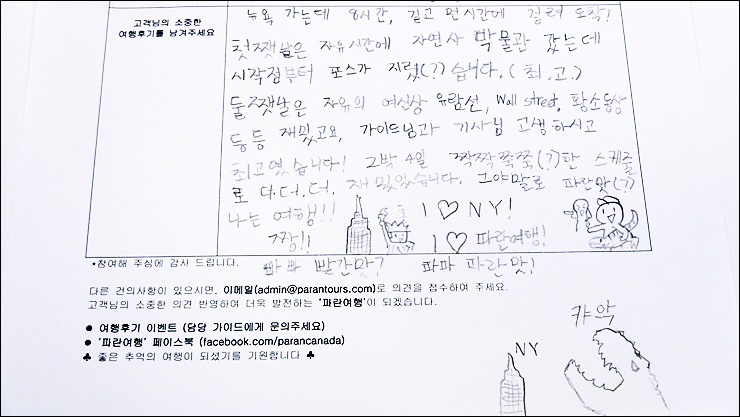 고객님의 소중한
여행후기를 남겨주세요
뉴욕 가는데 8시간, 길고 먼시간에 걸려 도착!
첫쨋날은 자유시간에 자연사 박물관 갔는데
시작점부터 포스가 지렸(?)습니다.(최.고.)
둘쨋날은 자유의 여신상 유람선, Wall street, 황소동상
등등 재밌고요, 가이드님과 기사님 고생하시고
최고였습니다! 3박 4일 짝짝쭉쭉(?)한 스케줄
로 더.더.더. 재밌었습니다. 그야말로 파란맛(?)
나는 여행!!! I ♡ NY!
짱!! I ♡ 파란여행!
*참여해 주심에 감사 드립니다. 빠빠 빨간맛? 파파 파란맛!
다른 건의사항이 있으시면, 이메일(admin@parantours.com)로 의견을 접수하여 주세요.
고객님의 소중한 의견 반영하여 더욱 발전하는 '파란여행'이 되겠습니다.
● 여행후기 이벤트 (담당 가이드에게 문의주세요)
● '파란여행' 페이스북 (facebook.com/parancanada)
♣ 좋은 추억의 여행이 되셨기를 기원합니다 ♣
캬악
NY